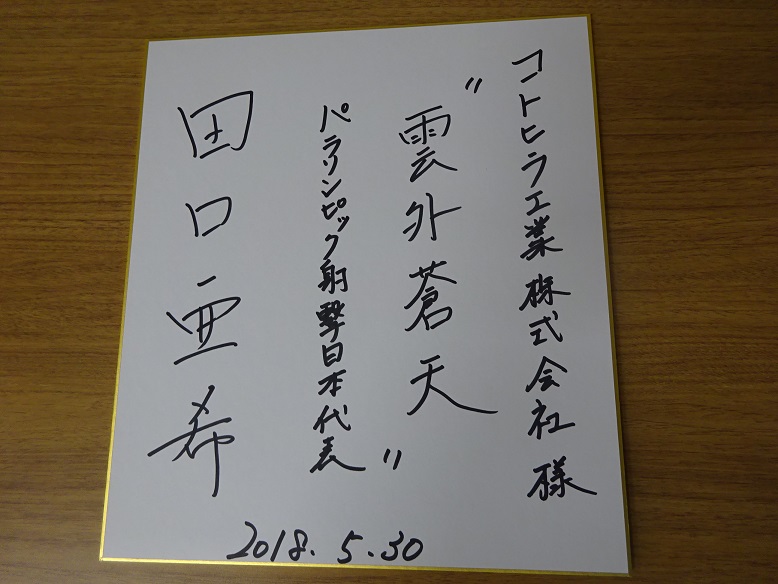 コトヒラ工業株式会社様
"雲外蒼天"
パラリンピック射撃日本代表
田口亜希
2018.5.30